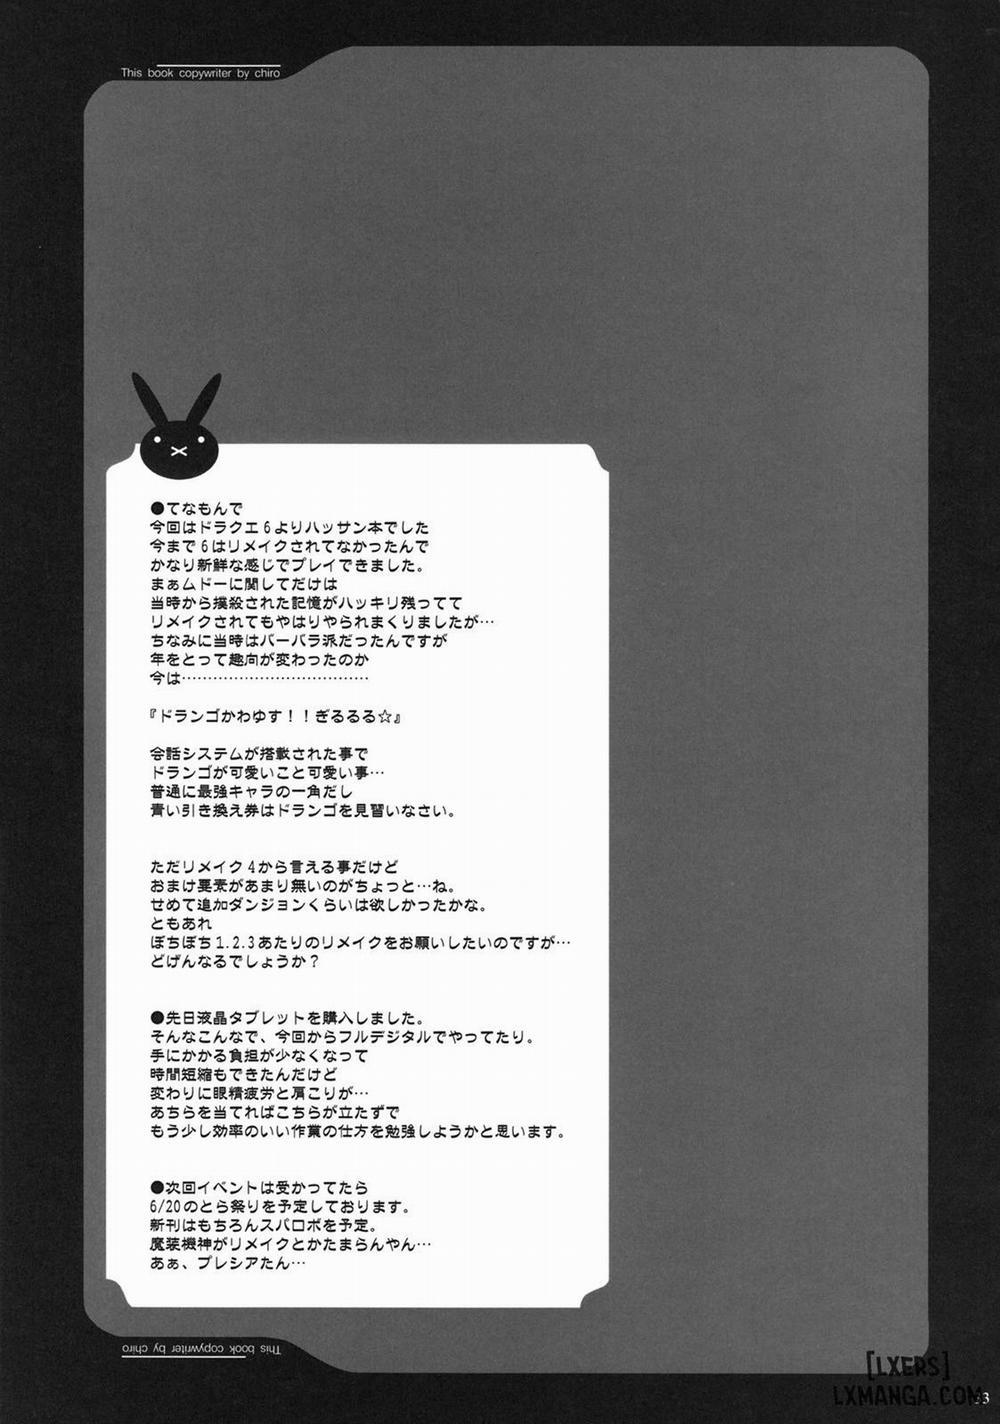 This book copywriter by chiro
●てなもんで
今回はドラクエ6よりハッサン本でした
今まで6はリメイクされてなかったんで
かなり新鮮な感じでプレイできました。
まぁムドーに関してだけは
当時から撲殺された記憶がハッキリ残ってて
リメイクされてもやはりやられまくりましたが…
ちなみに当時はバーバラ派だったんですが
年をとって趣向が変わったのか
今は………………………………
『ドランゴかわゆす！！ぎるるる☆』
会話システムが搭載された事で
ドランゴが可愛いこと可愛い事…
普通に最強キャラの一角だし
青い引き換え券はドランゴを見習いなさい。
ただリメイク4から言える事だけど
おまけ要素があまり無いのがちょっと…ね。
せめて追加ダンジョンくらいは欲しかったかな。
ともあれ
ぼちぼち1.2.3あたりのリメイクをお願いしたいのですが…
どげんなるでしょうか？
●先日液晶タブレットを購入しました。
そんなこんなで、今回からフルデジタルでやってたり。
手にかかる負担が少なくなって
時間短縮もできたんだけど
変わりに眼精疲労と肩こりが…
あちらを当てればこちらが立たずで
もう少し効率のいい作業の仕方を勉強しようかと思います。
●次回イベントは受かってたら
6/20のとら祭りを予定しております。
新刊はもちろんスパロボを予定。
魔装機神がリメイクとかたまらんやん…
あぁ、プレシアたん…
This book copywriter by chiro
[LXERS]
LXMANGA.COM
33